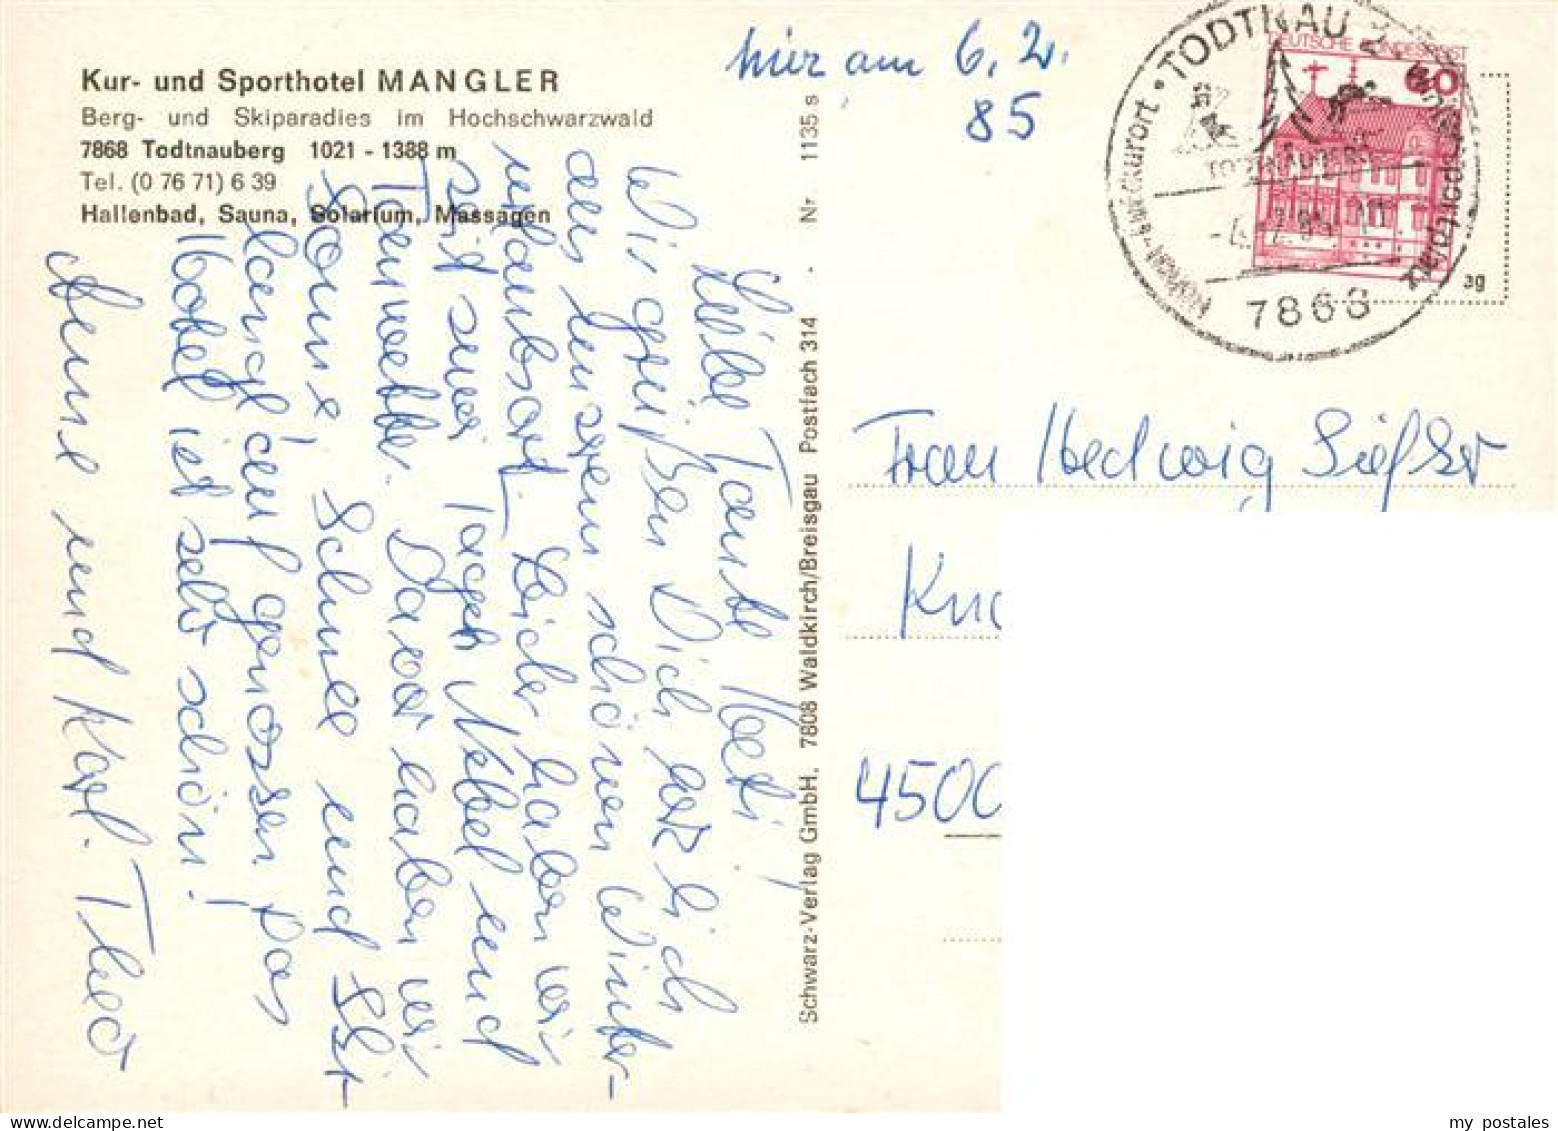 Kur- und Sporthotel MANGLER
Berg- und Skiparadies im Hochschwarzwald
7868 Todtnauberg 1021 - 1388 m
Tel. (0 76 71) 6 39
Hallenbad, Sauna, Solarium, Massagen
hier am 6. 2.
85
Liebe Tante Hedi!
Wir grüßen Dich herzlich
aus unserem schönen Winter-
urlaubsort. Leider haben wir
seit zwei Tagen Nebel und
Tauwetter. Davor haben wir
Sonne, Schnee und Ski-
langlauf genossen. Das
Hotel ist sehr schön!
Anne und Karl-Theo
Schwarz-Verlag GmbH, 7808 Waldkirch/Breisgau Postfach 314 · Nr 1135 s
TODTNAU 2
DEUTSCHE BUNDESPOST
60
TODTNAUBERG
7868
ag
Frau Hedwig
4500
my postales